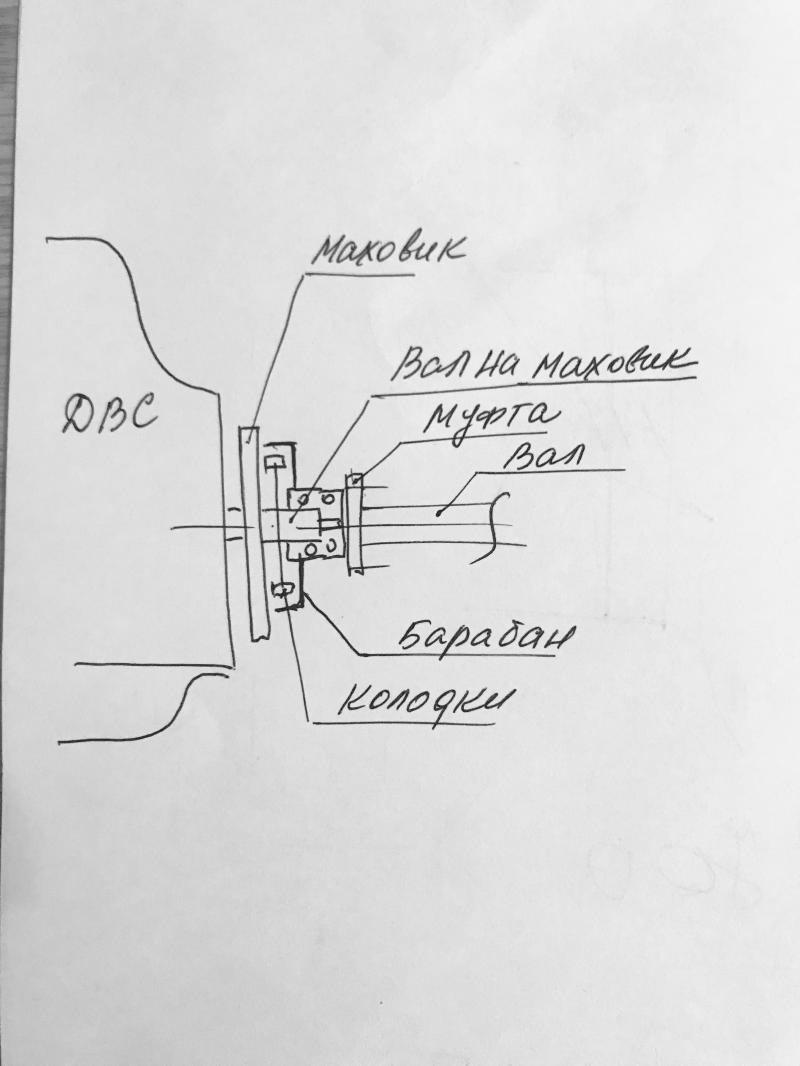 Маховик
Вал на маховик
ДВС
Муфта
Вал
Барабан
Колодки